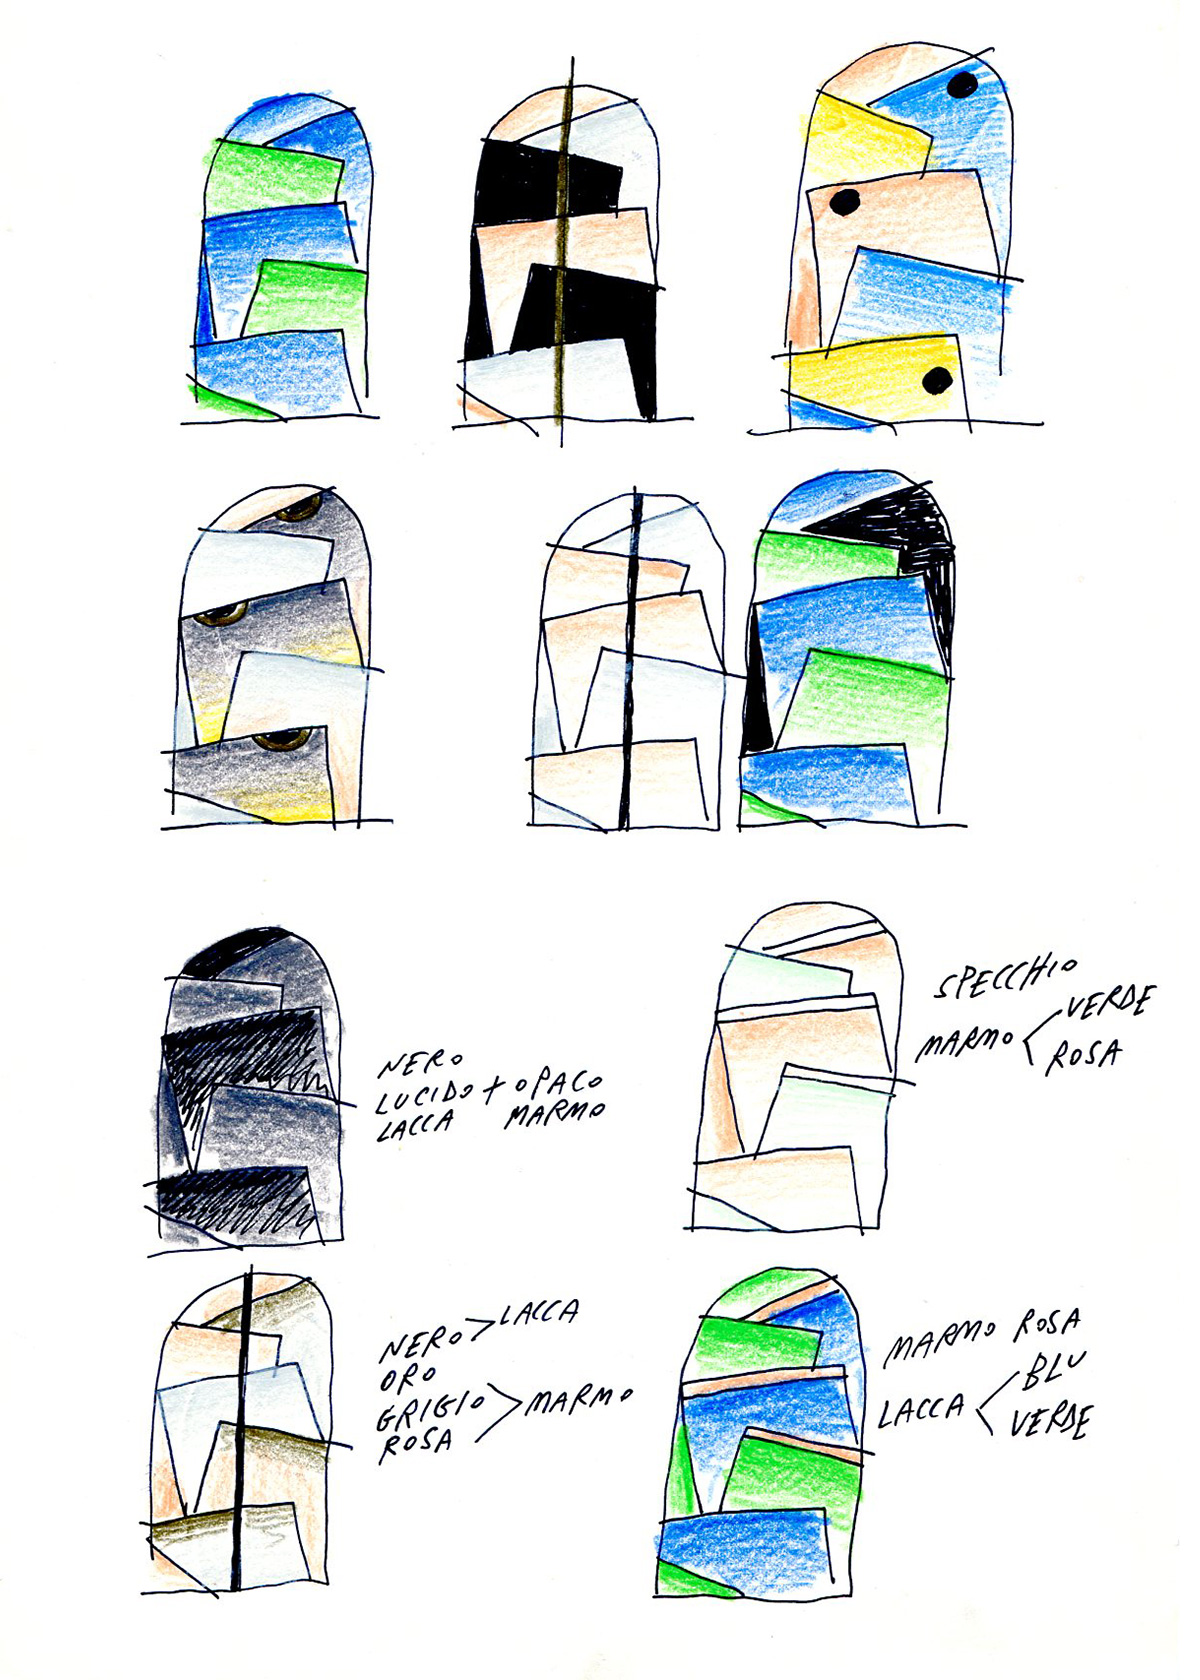 NERO
LUCIDO + OPACO
LACCA MARMO
SPECCHIO
MARMO < VERDE
ROSA
NERO > LACCA
ORO
GRIGIO > MARMO
ROSA
MARMO ROSA
LACCA < BLU
VERDE